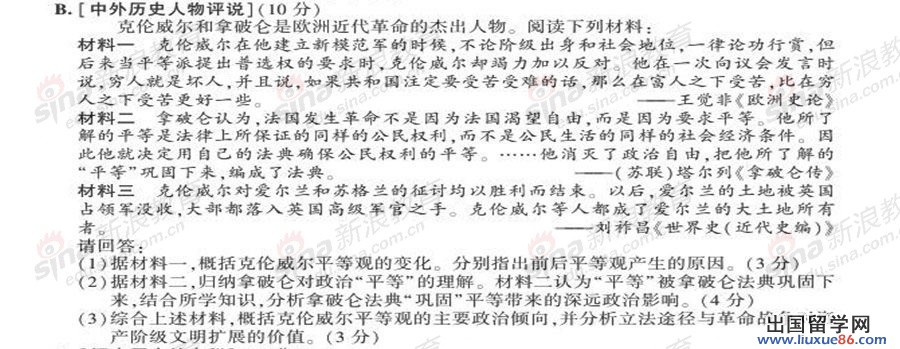 B. [中外历史人物评说](10 分)
克伦威尔和拿破仑是欧洲近代革命的杰出人物。阅读下列材料:
材料一 克伦威尔在他建立新模范军的时候,不论阶级出身和社会地位,一律论功行赏,但
后来当平等派提出普选权的要求时,克伦威尔却竭力加以反对。他在一次向议会发言时
说,穷人就是坏人,并且说,如果共和国注定要受苦受难的话,那么在富人之下受苦,比在穷
人之下受苦更好一些。 ——王觉非《欧洲史论》
材料二 拿破仑认为,法国发生革命不是因为法国渴望自由,而是因为要求平等。他所了
解的平等是法律上所保证的同样的公民权利,而不是公民生活的同样的社会经济条件。因
此他就决定用自己的法典确保公民权利的平等。……他消灭了政治自由,把他所了解的
“平等”巩固下来,编成了法典。 ——(苏联)塔尔列《拿破仑传》
材料三 克伦威尔对爱尔兰和苏格兰的征讨均以胜利而结束。以后,爱尔兰的土地被英国
占领军没收,大部都落入英国高级军官之手。克伦威尔等人都成了爱尔兰的大土地所有
者。 ——刘祚昌《世界史(近代史编)》
请回答:
(1)据材料一,概括克伦威尔平等观的变化。分别指出前后平等观产生的原因。(3 分)
(2)据材料二,归纳拿破仑对政治“平等”的理解。材料二认为“平等”被拿破仑法典巩固下
来,结合所学知识,分析拿破仑法典“巩固”平等带来的深远政治影响。(4 分)
(3)综合上述材料,概括克伦威尔平等观的主要政治倾向,并分析立法途径与革命
产阶级文明扩展的价值。(3 分)
出国留学网
www.liuxue86.com
sina新浪教育
edu.sina.com.cn